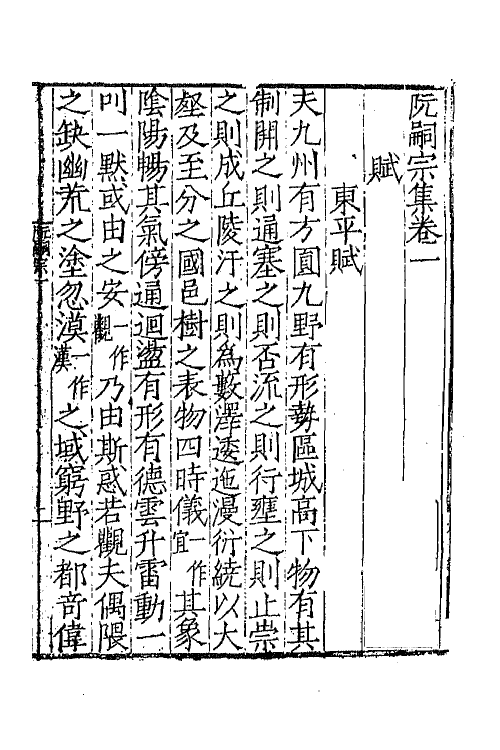 阮嗣宗集卷一
賦
東平賦
夫九州有方圓九野有形勢區城高下物有其
制開之則通塞之則否流之則行壅之則止崇
之則成丘陵汙之則為藪澤逶迤漫衍繞以大
壑及至分之國邑樹之表物四時儀一作宜其象
陰陽暢其氣傍通迴盪有形有德雲升雷動一
叫一默或由之安一作觀乃由斯惑若觀夫偶隈
之缺幽荒之塗忽漠一作漢之域窮野之都奇偉
阮嗣宗一
一